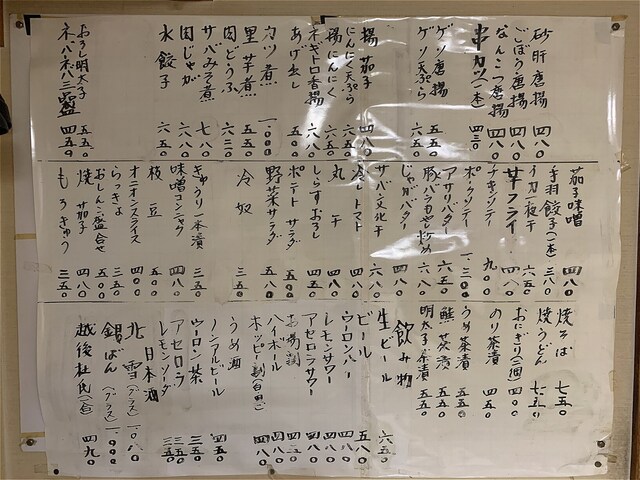 砂肝唐揚 四八〇
ごぼう唐揚 四八〇
なんこつ唐揚 四八〇
串カツ(一本) 四三〇
ゲソ唐揚 五五〇
ゲソ天ぷら 六五〇
揚茄子 四八〇
にんにく天ぷら 六五〇
揚にんにく 六五〇
ネギトロ香揚 六八〇
あげ出し 五五〇
カツ煮 一、〇〇〇
里芋煮
肉どうふ 六三〇
サバみそ煮 七八〇
肉じゃが 六八〇
水餃子 六五〇
おろし明太子 五五〇
ネバネバ三盛 四五〇
茄子味噌 四八〇
手羽餃子(一本) 三八〇
イカ一夜干 六五〇
芋フライ 四八〇
チキンソテー 九〇
ポークソテー 一、三〇〇
アサリバター 六五〇
豚バラもやし炒め 六八〇
じゃがバター 四八〇
サバ文化干 六八〇
冷しトマト 四八〇
丸干 四八〇
しらすおろし 四五〇
ポテトサラダ 五五〇
野菜サラダ 五八〇
冷奴 三五〇
きゅうり一本漬 三五〇
味噌コンニャク 四八〇
枝豆 五五〇
オニオンスライス 四五〇
らっきょ 三五〇
おしんこ盛合せ 五〇〇
焼茄子 四八〇
もろきゅう 三五〇
焼そば 七五〇
焼うどん 七五〇
おにぎり(二個) 四〇〇
のり茶漬 四五〇
うめ茶漬 五五〇
鮭茶漬 五五〇
明太子茶漬 五五〇
飲み物
生ビール 六五〇
ビール 五八〇
ウーロンハイ 四八〇
レモンサワー 四八〇
アセロラサワー 四八〇
お湯割 四三〇
ハイボール 四八〇
ホッピー割(白・黒) 四八〇
うめ酒
ノンアルビール 四五〇
ウーロン茶 三五〇
アセロラ 三五〇
レモンソーダ 三五〇
日本酒
北雪(グラス) 一、〇八〇
銀ばん(グラス) 一、〇〇〇
越後杜氏(一合) 四九〇